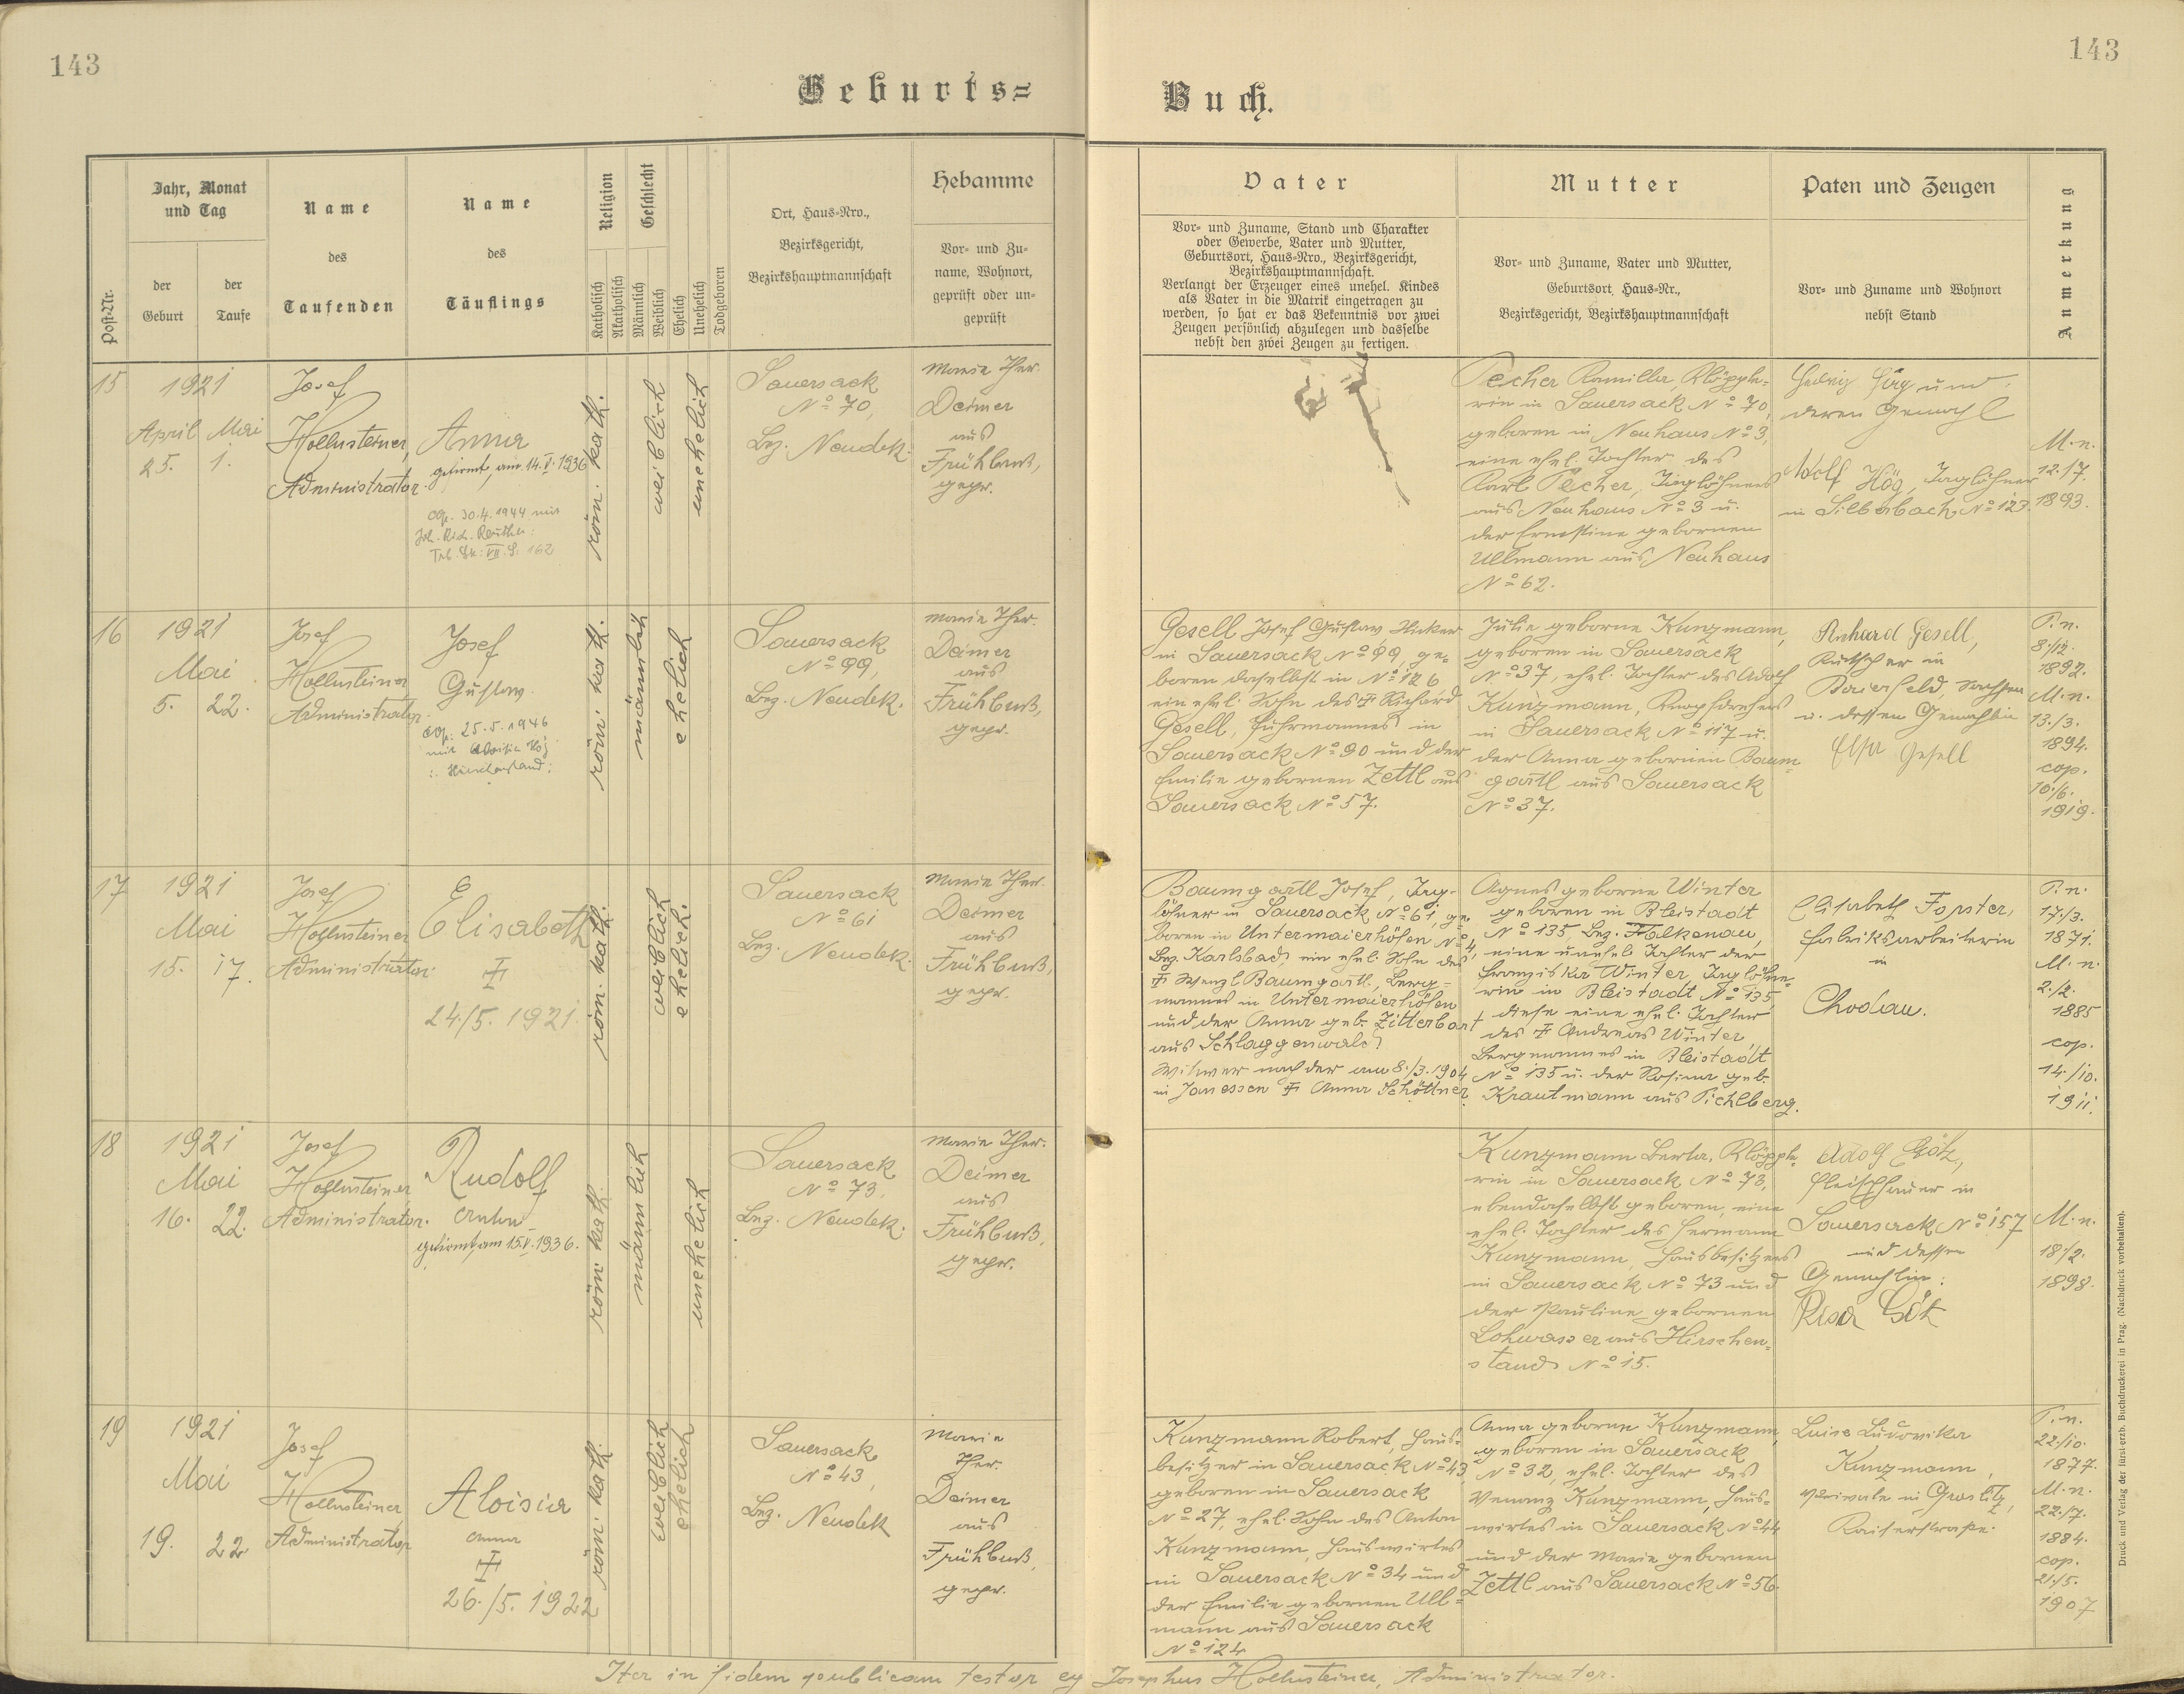 143
143
Geburts=
Buch.
Post-Nr.
Jahr, Monat
und Tag
der
Geburt
der
Taufe
Name
des
Taufenden
Name
des
Täuflings
Religion
Katholisch
Akatholisch
Geschlecht
Männlich
Weiblich
Ehelich
Unehelich
Todgeboren
Ort, Haus=Nro.,
Bezirksgericht,
Bezirkshauptmannschaft
Hebamme
Vor= und Zu=
name, Wohnort,
geprüft oder un=
geprüft
Vater
Vor= und Zuname, Stand und Charakter
oder Gewerbe, Vater und Mutter,
Geburtsort, Haus=Nro., Bezirksgericht,
Bezirkshauptmannschaft.
Verlangt der Erzeuger eines unehel. Kindes
als Vater in die Matrik eingetragen zu
werden, so hat er das Bekenntnis vor zwei
Zeugen persönlich abzulegen und dasselbe
nebst den zwei Zeugen zu fertigen.
Mutter
Vor= und Zuname, Vater und Mutter,
Geburtsort, Haus=Nr.,
Bezirksgericht, Bezirkshauptmannschaft
Paten und Zeugen
Vor= und Zuname und Wohnort
nebst Stand
Anmerkung
15
1921
April Mai
25. 1.
Josef
Hollnsteiner,
Administrator.
Anna
gefirmt, am 14.V.1936
cop. 30.4.1944 mit
Trb. Bk: VII. S: 162
röm. kath.
weiblich
unehelich
Sauersack
No 70,
Bez. Neudek.
Marie Ther.
Deimer
aus
Frühbuß,
gepr.
Pecher Kamilla, Klöpple=
rin in Sauersack No 70,
geboren in Neuhaus No 3,
eine ehel. Tochter des
Karl Pecher, Taglöhners
aus Neuhaus No 3 u.
der Ernestine gebornen
Ullmann aus Neuhaus
No 62.
Hedwig Hög und
deren Gemahl
Adolf Hög, Taglöhner
in Silberbach No 123.
M. n.
12./7.
1893.
16
1921
Mai
5. 22.
Josef
Hollnsteiner,
Administrator.
Josef
Gustav.
cop: 25.5.1946
mit Aloisia Hög
röm. kath.
männlich
ehelich
Sauersack
No 99,
Bez. Neudek.
Marie Ther.
Deimer
aus
Frühbuß,
gepr.
Gesell Josef Gustav
in Sauersack No 99, ge=
boren daselbst in No 126
ein ehel. Sohn des ✝ Richard
Gesell, Fuhrmannes in
Sauersack No 90 und der
Emilie gebornen Zettl aus
Sauersack No 57.
Julie geborne Kunzmann,
geboren in Sauersack
No 37, ehel. Tochter des Adolf
Kunzmann, Knopfdrehers
in Sauersack No 117 u.
der Anna gebornen Baum
gartl aus Sauersack
No 37.
Richard Gesell,
Kutscher in
Baierfeld, Sachsen
u. dessen Gemahlin
Elsa Gesell
P. n.
8./12.
1892.
M. n.
13./3.
1894.
cop.
10./6.
1919.
17
1921
Mai
15. 17.
Josef
Hollnsteiner
Administrator.
Elisabeth
✝
24./5. 1921.
röm. kath.
weiblich
ehelich.
Sauersack
No 61
Bez. Neudek.
Marie Ther.
Deimer
aus
Frühbuß,
gepr.
Baumgartl Josef, Tag=
löhner in Sauersack No 61, ge=
boren in Untermaierhöfen No 4,
Bez. Karlsbad, ein ehel. Sohn des
✝ Wenzl Baumgartl, Berg=
mannes in Untermaierhöfen
und der Anna geb. Zitterbart
aus Schlaggenwald,
Witwer nach der am 8./3. 1904
in Janessen ✝ Anna Schöttner.
Agnes geborne Winter
geboren in Bleistadt
No 135, Bez. Falkenau,
eine unehel. Tochter der
Franziska Winter, Taglöhne=
rin in Bleistadt No 135,
diese eine ehel. Tochter
des ✝ Andreas Winter,
Bergmannes in Bleistadt
No 135 u. der Rosina geb.
Krautmann aus Pichlberg.
Elisabeth Forster,
Fabriksarbeiterin
in
Chodau.
P. n.
17./3.
1871.
M. n.
2./2.
1885
cop.
14./10.
1911.
18
1921
Mai
16. 22.
Josef
Hollnsteiner
Administrator.
Rudolf
Anton
gefirmt, am 15.V.1936.
röm. kath.
männlich
unehelich
Sauersack
No 73,
Bez. Neudek.
Marie Ther.
Deimer
aus
Frühbuß,
gepr.
Kunzmann Berta, Klöpple=
rin in Sauersack No 73,
ebendaselbst geboren, eine
ehel. Tochter des Hermann
Kunzmann, Hausbesitzers
in Sauersack No 73 und
der Pauline gebornen
Lohwasser aus Hirschen=
stand No 15.
Adolf Götz,
Fleischhauer in
Sauersack No 157
und dessen
Gemahlin:
Rosa Götz
M. n.
18./2.
1898.
19
1921
Mai
19. 22.
Josef
Hollnsteiner
Administrator
Aloisia
Anna
✝
26./5. 1922
röm. kath.
weiblich
ehelich
Sauersack
No 43,
Bez. Neudek
Marie
Ther.
Deimer
aus
Frühbuß,
gepr.
Kunzmann Robert, Haus=
besitzer in Sauersack No 43,
geboren in Sauersack
No 27, ehel. Sohn des Anton
Kunzmann, Hauswirtes
in Sauersack No 34 und
der Emilie gebornen Ull=
mann aus Sauersack
No 124
Anna geborne Kunzmann,
geboren in Sauersack
No 32, ehel. Tochter des
Venanz Kunzmann, Haus=
wirtes in Sauersack No 44
und der Marie gebornen
Zettl aus Sauersack No 56.
Luise Ludovika
Kunzmann,
Private in Graslitz,
Kaiserstraße.
P. n.
22./10.
1877.
M. n.
22./7.
1884.
cop.
21./5.
1907
Druck und Verlag der fürst-erzb. Buchdruckerei in Prag. (Nachdruck vorbehalten).
Ita in fidem publicam testor Josephus Hollnsteiner, Administrator.